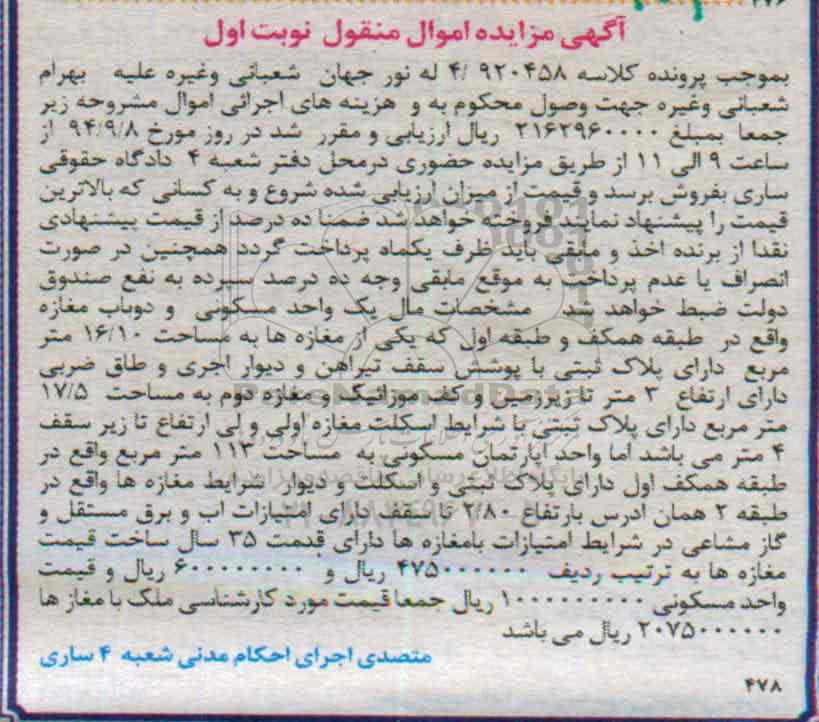 ۴۷۶
آگهی مزایده اموال منقول نوبت اول
بموجب پرونده کلاسه ۹۲۰۴۵۸ /۴ له نور جهان شعبانی وغیره علیه بهرام
شعبانی وغیره جهت وصول محکوم به و هزینه های اجرائی اموال مشروحه زیر
جمعا بمبلغ ۲۱۶۲۹۶۰۰۰۰ ریال ارزیابی و مقرر شد در روز مورخ ۹۴/۹/۸ از
ساعت ۹ الی ۱۱ از طریق مزایده حضوری درمحل دفتر شعبه ۴ دادگاه حقوقی
ساری بفروش برسد و قیمت از میزان ارزیابی شده شروع و به کسانی که بالاترین
قیمت را پیشنهاد نمایند فروخته خواهد شد ضمنا ده درصد از قیمت پیشنهادی
نقدا از برنده اخذ و مابقی باید ظرف یکماه پرداخت گردد همچنین در صورت
انصراف یا عدم پرداخت به موقع مابقی وجه ده درصد سپرده به نفع صندوق
دولت ضبط خواهد شد مشخصات مال یک واحد مسکونی و دوباب مغازه
واقع در طبقه همکف و طبقه اول که یکی از مغازه ها به مساحت ۱۶/۱۰ متر
مربع دارای پلاک ثبتی با پوشش سقف تیراهن و دیوار اجری و طاق ضربی
دارای ارتفاع ۳ متر تا زیرزمین و کف موزائیک و مغازه دوم به مساحت ۱۷/۵
متر مربع دارای پلاک ثبتی با شرایط اسکلت مغازه اولی و لی ارتفاع تا زیر سقف
۴ متر می باشد اما واحد آپارتمان مسکونی به مساحت ۱۱۳ متر مربع واقع در
طبقه همکف اول دارای پلاک ثبتی و اسکلت و دیوار شرایط مغازه ها واقع در
طبقه ۲ همان ادرس بارتفاع ۲/۸۰ تا سقف دارای امتیازات اب و برق مستقل و
گاز مشاعی در شرایط امتیازات بامغازه ها دارای قدمت ۳۵ سال ساخت قیمت
مغازه ها به ترتیب ردیف ۴۷۵۰۰۰۰۰۰ ریال و ۶۰۰۰۰۰۰۰۰ ریال و قیمت
واحد مسکونی ۱۰۰۰۰۰۰۰۰۰ ریال جمعا قیمت مورد کارشناسی ملک با مغاز ها
۲۰۷۵۰۰۰۰۰۰ ریال می باشد
متصدی اجرای احکام مدنی شعبه ۴ ساری
۴۷۸